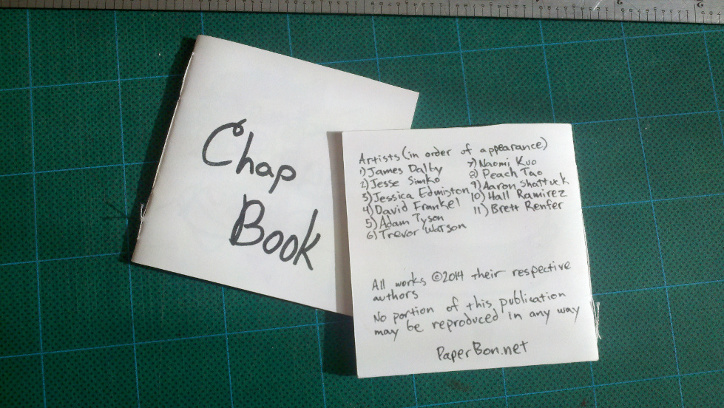 Chap
Book
Artists (in order of appearance)
1) James Dalby
2) Jesse Simko
3) Jessica Edmiston
4) David Frankel
5) Adam Tyson
6) Trevor Watson
7) Naomi Kuo
8) Peach Tao
9) Aaron Shattuck
10) Hall Ramirez
11) Brett Renfer
All works ©2014 their respective
authors
No portion of this publication
may be reproduced in any way
PaperBon.net